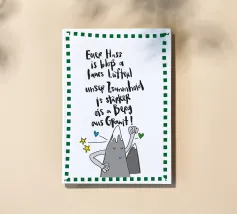 Eure Hass
is bloß a
laues Lüfterl
unser Zsammhoid
is stärker
ois a Berg
aus Granit!